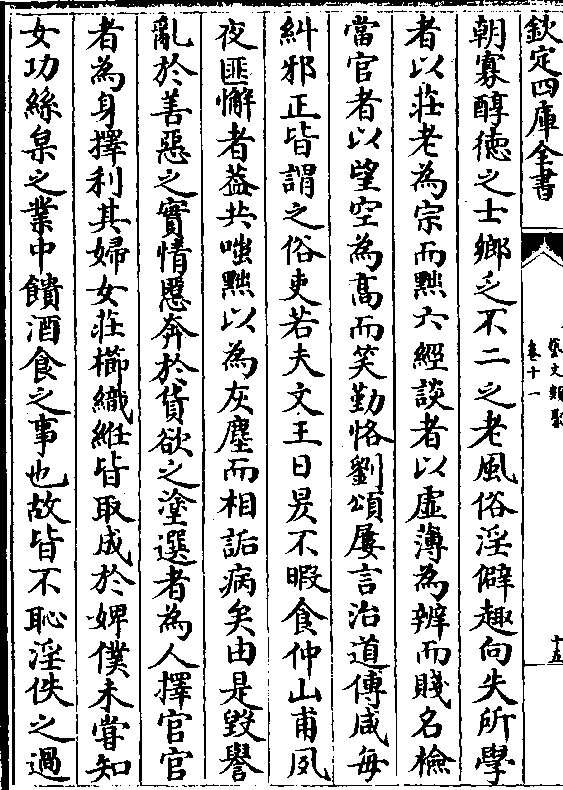 欽定四庫全書
藝文類聚
卷十一
十五
朝寡醇徳之士鄉乏不二之老風俗淫僻趣向失所學
者以莊老為宗而黜六經談者以虛薄為辨而賤名檢
當官者以望空為髙而笑勤恪劉頌屢言治道傅咸每
糾邪正皆謂之俗吏若夫文王日昃不暇食仲山甫夙
夜匪懈者葢共嗤黜以為灰塵而相詬病矣由是毀譽
亂於善惡之實情慝奔於貨欲之塗選者為人擇官官
者為身擇利其婦女莊櫛織絍皆取成於婢僕未嘗知
女功絲枲之業中饋酒食之事也故皆不恥淫佚之過